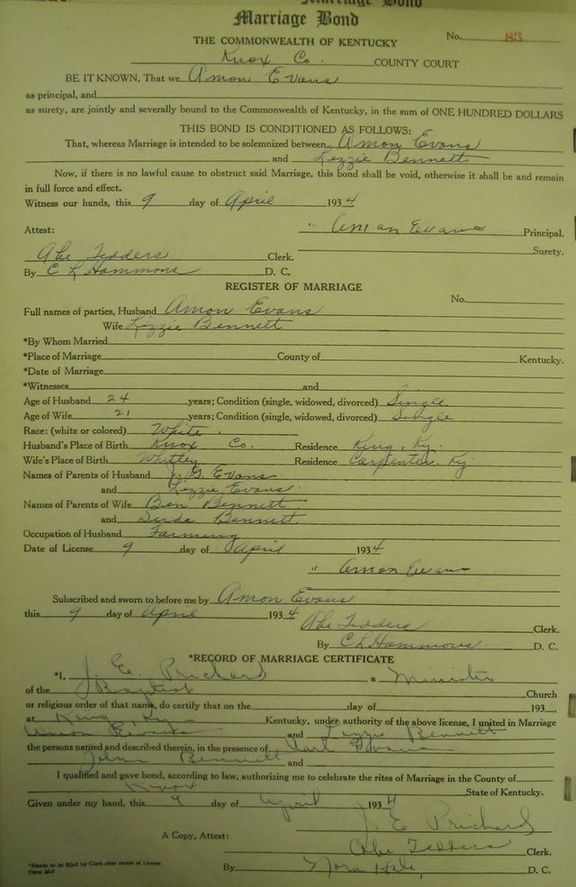 Marriage Bond
Marriage Bond
No. 83
THE COMMONWEALTH OF KENTUCKY
Knox Co. COUNTY COURT
BE IT KNOWN, That we Amon Evans
as principal, and
as surety, are jointly and severally bound to the Commonwealth of Kentucky, in the sum of ONE HUNDRED DOLLARS
THIS BOND IS CONDITIONED AS FOLLOWS:
That, whereas Marriage is intended to be solemnized between Amon Evans
and Lizzie Bennett
Now, if there is no lawful cause to obstruct said Marriage, this bond shall be void, otherwise it shall be and remain
in full force and effect.
Witness our hands, this 9 day of April 1934
Attest: " Amon Evans Principal.
Surety.
Abe Tedders Clerk.
By C L Hammons D. C.
REGISTER OF MARRIAGE
No.
Full names of parties, Husband Amon Evans
Wife Lizzie Bennett
*By Whom Married
*Place of Marriage County of Kentucky.
*Date of Marriage
*Witnesses and
Age of Husband 24 years; Condition (single, widowed, divorced) Single
Age of Wife 21 years; Condition (single, widowed, divorced) Single
Race: (white or colored) White.
Husband's Place of Birth Knox Co. Residence King, Ky.
Wife's Place of Birth Whitley Residence Carpenter, Ky
Names of Parents of Husband J. G. Evans
and Lizzie Evans.
Names of Parents of Wife Ben Bennett
and Bennett.
Occupation of Husband Farming
Date of License 9 day of April 1934
" Amon Evans
Subscribed and sworn to before me by Amon Evans
this 9 day of April 1934 Abe Tedders Clerk.
By C L Hammons. D. C.
*RECORD OF MARRIAGE CERTIFICATE
*I, J. E. Prichard a Minister
of the Baptist Church
or religious order of that name, do certify that on the day of 193
at King, Ky Kentucky, under authority of the above license, I united in Marriage
Amon Evans and Lizzie Bennett
the persons named and described therein, in the presence of Carl Evans
John Bennett and
I qualified and gave bond, according to law, authorizing me to celebrate the rites of Marriage in the County of
Knox State of Kentucky.
Given under my hand, this 9 day of April 1934
J. E Prichard
A Copy, Attest: Abe Tedders Clerk.
By Nora Hale, D. C.
*Blanks to be filled by Clerk after return of License